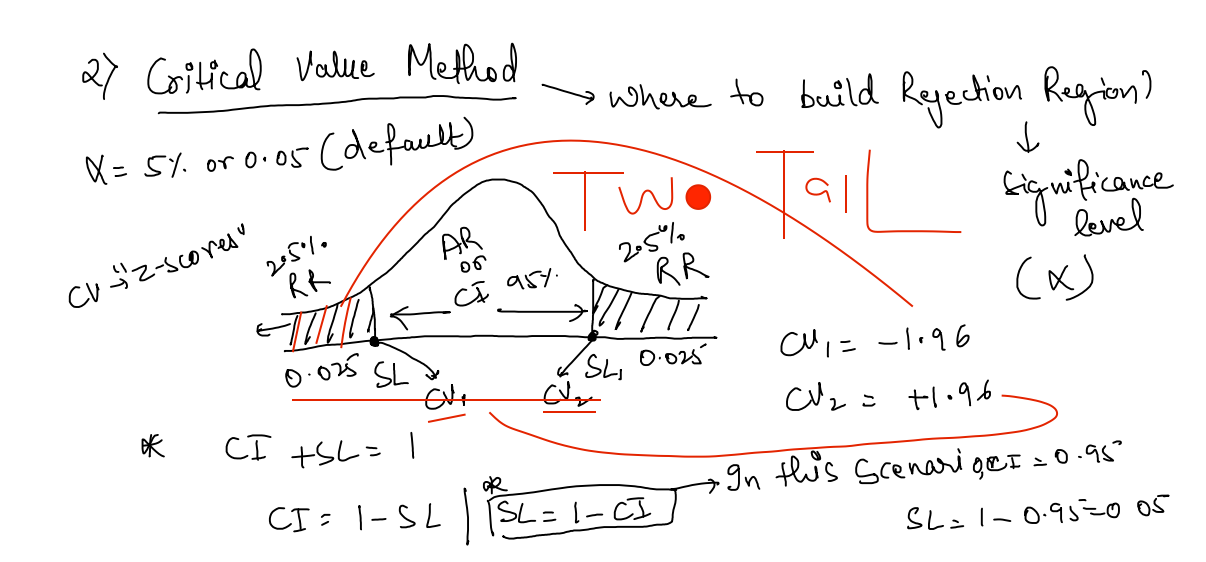 2) Critical Value Method → Where to build Rejection Region?
↓
Significance level
(α)
α = 5% or 0.05 (default)
Two Tail
CV → "Z-scores"
2.5%
RR
AR
or
CI 95%
2.5%
RR
0.025 SL
CV₁
CV₂
SL₁ 0.025
CV₁ = -1.96
CV₂ = +1.96
* CI + SL = 1
CI = 1 - SL | * SL = 1 - CI → In this Scenario, CI = 0.95
SL = 1 - 0.95 = 0.05